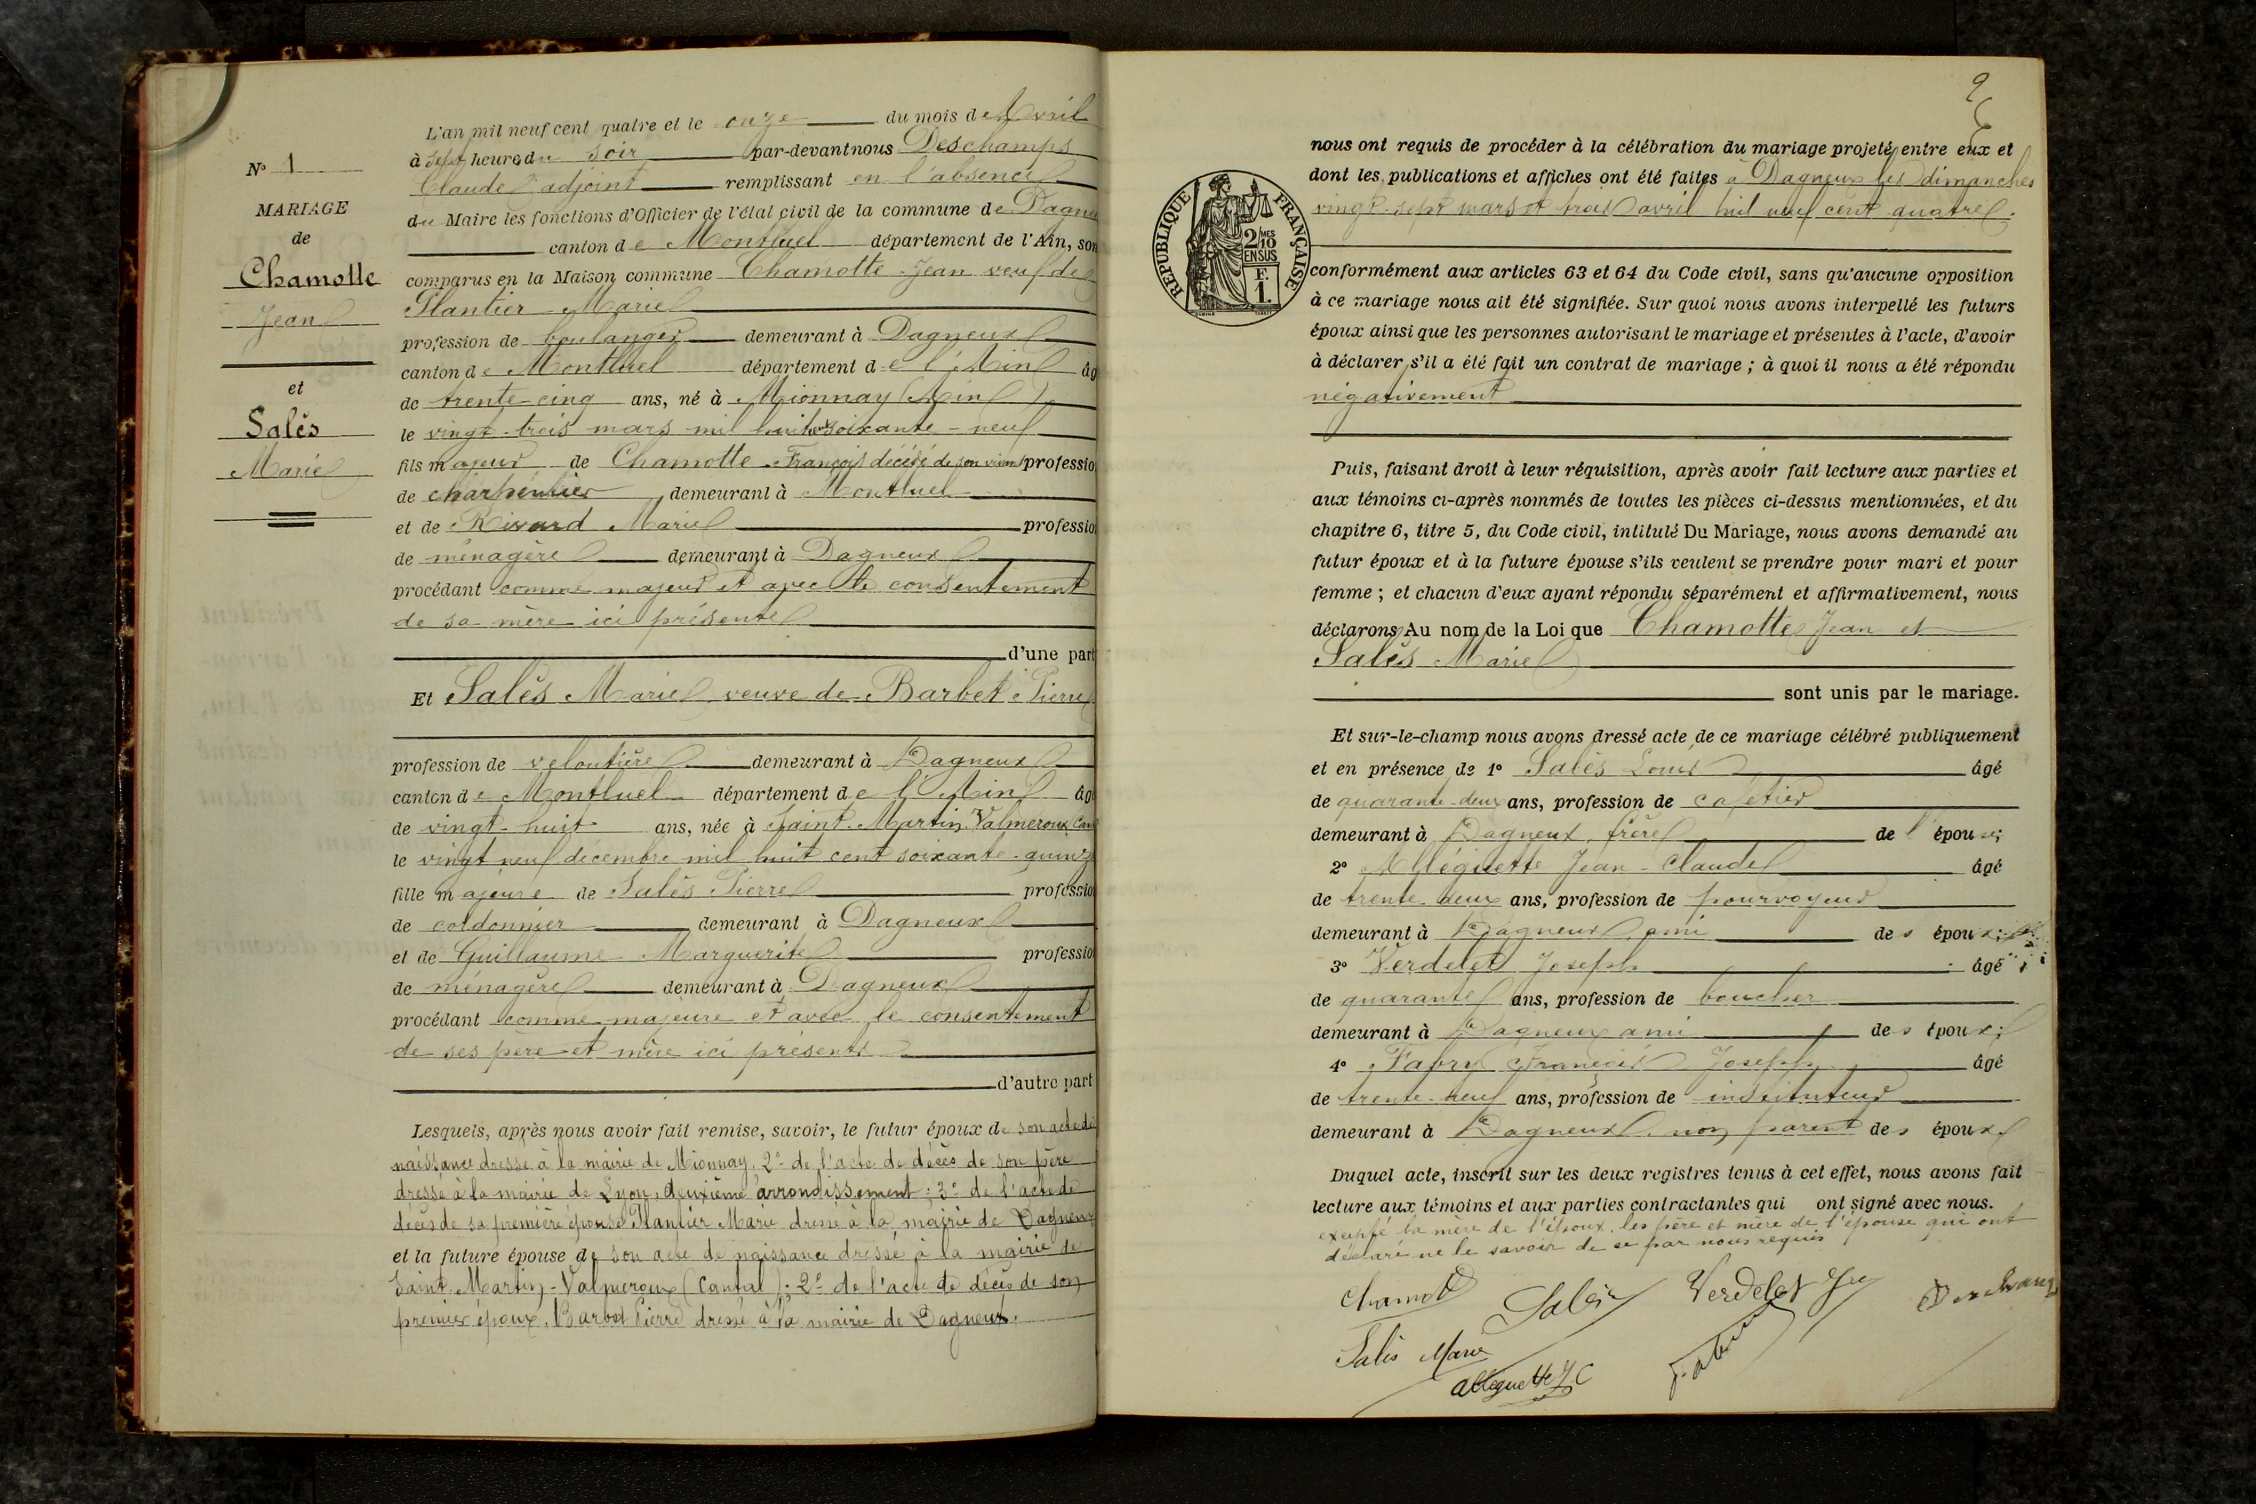 N° 1
MARIAGE
de
Chamotte
Jean
et
Salès
Marie
L'an mil neuf cent quatre et le onze du mois de Avril
à sept heures du soir par-devant nous Deschamps
Claude adjoint remplissant en l'absence
du Maire les fonctions d'Officier de l'état civil de la commune de Dagneu
canton de Montluel département de l'Ain, son
comparus en la Maison commune Chamotte Jean veuf de
Plantier Marie
profession de boulanger demeurant à Dagneux
canton de Montluel département de l'Ain âg
de trente-cinq ans, né à Mionnay (Ain)
le vingt-trois mars mil huit cent soixante-neuf
fils majeur de Chamotte François décédé de son vivant professio
de charpentier demeurant à Montluel
et de Rivard Marie professio
de ménagère demeurant à Dagneux
procédant comme majeur et avec le consentement
de sa mère ici présente
d'une part
Et Salès Marie veuve de Barbet Pierre
profession de veloutière demeurant à Dagneux
canton de Montluel département de l'Ain âg
de vingt-huit ans, née à Saint-Martin-Valmeroux Can
le vingt neuf décembre mil huit cent soixante-quinze
fille majeure de Salès Pierre professio
de cordonnier demeurant à Dagneux
et de Guillaume Marguerite professio
de ménagère demeurant à Dagneux
procédant comme majeure et avec le consentement
de ses père et mère ici présents
d'autre part
Lesquels, après nous avoir fait remise, savoir, le futur époux de son acte de
naissance dressé à la mairie de Mionnay, 2° de l'acte de décès de son père
dressé à la mairie de Lyon, deuxième arrondissement; 3° de l'acte de
décès de sa première épouse Plantier Marie dressé à la mairie de Dagneux
et la future épouse de son acte de naissance dressé à la mairie de
Saint-Martin-Valmeroux (Cantal); 2° de l'acte de décès de son
premier époux, Barbet Pierre dressé à la mairie de Dagneux.
2
nous ont requis de procéder à la célébration du mariage projeté entre eux et
dont les publications et affiches ont été faites à Dagneux les dimanches
vingt-sept mars et trois avril mil neuf cent quatre.
RÉPUBLIQUE FRANÇAISE
2/10 MES
EN SUS
F.
1.
conformément aux articles 63 et 64 du Code civil, sans qu'aucune opposition
à ce mariage nous ait été signifiée. Sur quoi nous avons interpellé les futurs
époux ainsi que les personnes autorisant le mariage et présentes à l'acte, d'avoir
à déclarer s'il a été fait un contrat de mariage ; à quoi il nous a été répondu
négativement
Puis, faisant droit à leur réquisition, après avoir fait lecture aux parties et
aux témoins ci-après nommés de toutes les pièces ci-dessus mentionnées, et du
chapitre 6, titre 5, du Code civil, intitulé Du Mariage, nous avons demandé au
futur époux et à la future épouse s'ils veulent se prendre pour mari et pour
femme ; et chacun d'eux ayant répondu séparément et affirmativement, nous
déclarons Au nom de la Loi que Chamotte Jean et
Salès Marie
sont unis par le mariage.
Et sur-le-champ nous avons dressé acte de ce mariage célébré publiquement
et en présence de 1° Salès Louis âgé
de quarante-deux ans, profession de cafetier
demeurant à Dagneux, frère de l'épouse;
2° Alléguette Jean-Claude âgé
de trente-deux ans, profession de pourvoyeur
demeurant à Dagneux, ami des époux;
3° Verdelet Joseph âgé
de quarante ans, profession de boucher
demeurant à Dagneux ami des époux;
4° Fabry François Joseph âgé
de trente-neuf ans, profession de instituteur
demeurant à Dagneux, non parent des époux
Duquel acte, inscrit sur les deux registres tenus à cet effet, nous avons fait
lecture aux témoins et aux parties contractantes qui ont signé avec nous.
excepté la mère de l'époux, les père et mère de l'épouse qui ont
déclaré ne le savoir de ce par nous requis
Chamotte Salès Verdelet Deschamps
Salès Marie
Alleguette J C